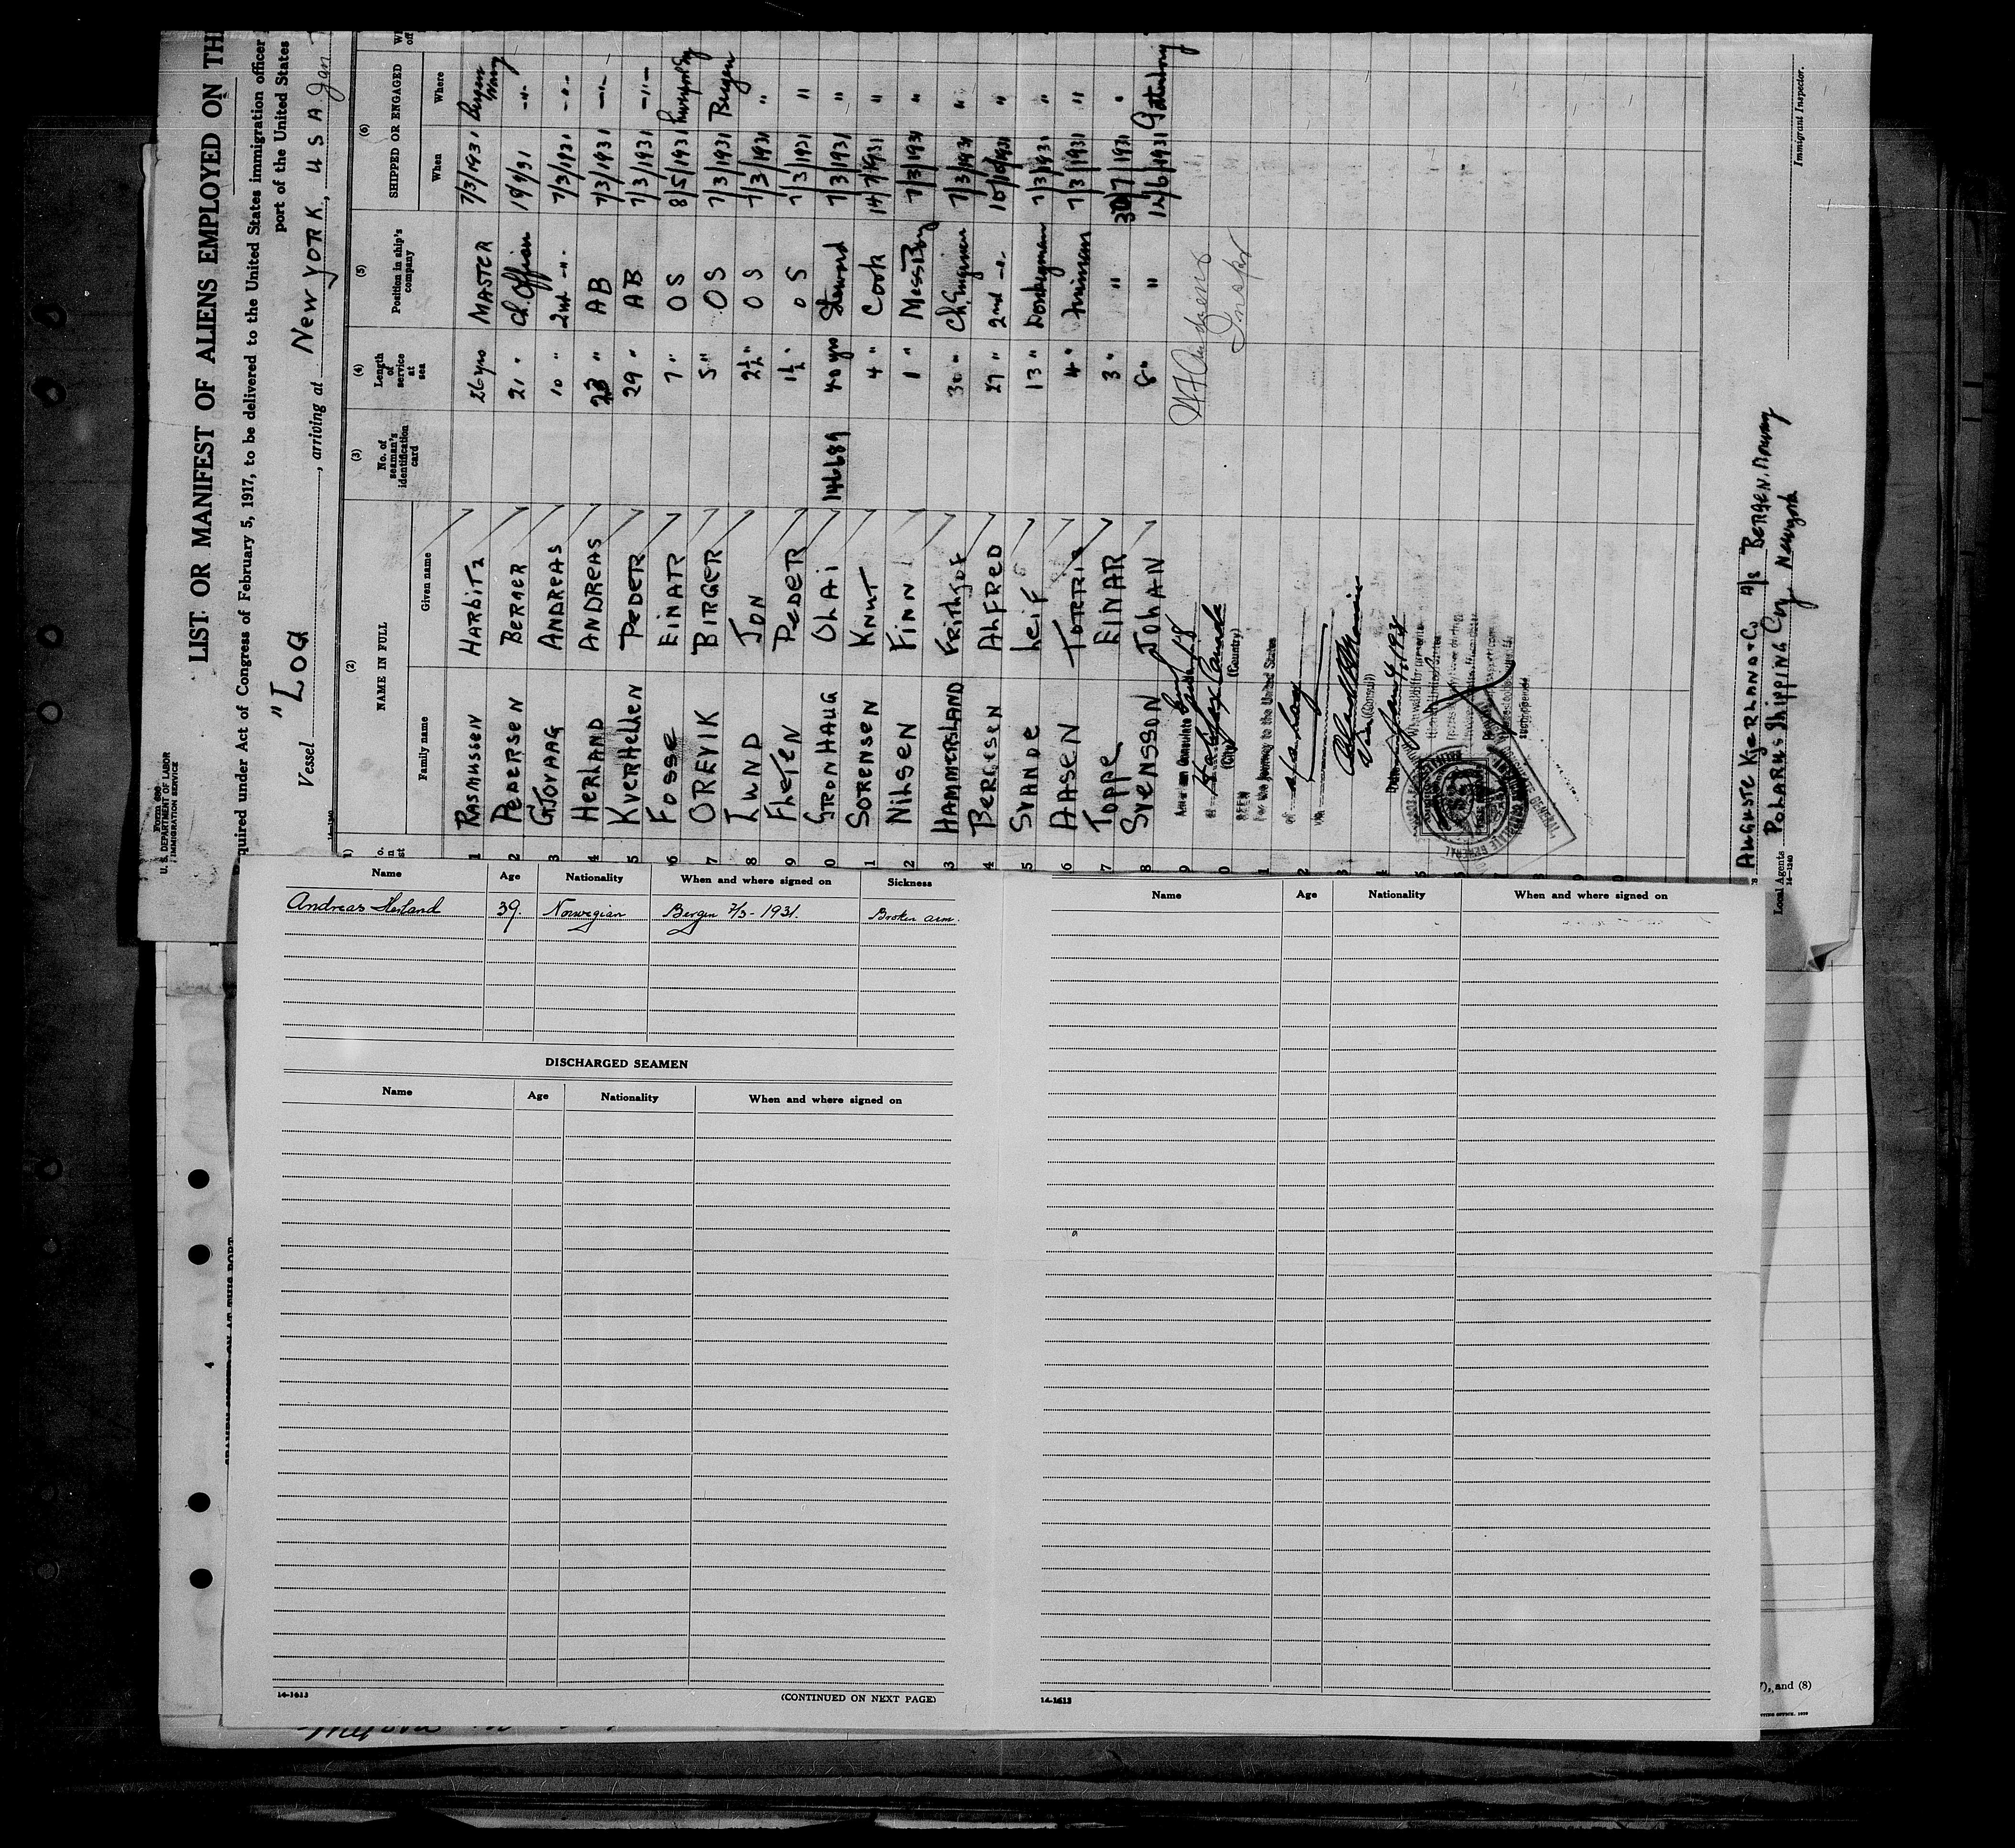 Form 680
U. S. DEPARTMENT OF LABOR
IMMIGRATION SERVICE
LIST OR MANIFEST OF ALIENS EMPLOYED ON TH
quired under Act of Congress of February 5, 1917, to be delivered to the United States immigration officer
port of the United States
Vessel "LOA" , arriving at NEW YORK, U S A Jan
14-1240
(2) (3) (4) (5) (6)
NAME IN FULL No. of seaman's identification card Length of service at sea Position in ship's company SHIPPED OR ENGAGED
Family name Given name When Where
1 RASMUSSEN HARBITZ 26 yrs MASTER 7/3/1931 Bergen
2 PEDERSEN BERNER 21 " Ch. Officer 19/9/31 -"-
3 GJOVAAG ANDREAS 10 " 2nd -"- 7/3/1931 -"-
4 HERLAND ANDREAS 23 " AB 7/3/1931 -"-
5 KVERHELLEN PEDER 29 " AB 7/3/1931 -"-
6 FOSSE EINAR 7 " OS 8/5/1931
7 OREVIK BIRGER 5 " OS 7/3/1931 Bergen
8 LUND JON 2½ " OS 7/3/1931 "
9 FLETEN PEDER 1½ " OS 7/3/1931 "
0 GRONHAUG OLAI 146689 40 yrs Steward 7/3/1931 "
1 SORENSEN KNUT 4 " Cook 14/7/1931 "
2 NILSEN FINN 1 " MessBoy 7/3/1931 "
3 HAMMERSLAND FRITHJOF 30 " Ch. Engineer 7/3/1931 "
4 BERGESEN ALFRED 27 " 2nd -"- 10/10/1931 "
5 SVANDE LEIF 13 " Donkeyman 7/3/1931 "
6 AASEN TORRIS 4 " Fireman 7/3/1931 "
7 TOPPE EINAR 3 " " 30/7/1931 "
8 SVENSSON JOHAN 8 " " 12/6/1931
American Consulate
at Halifax Canada
(City) (Country)
SEEN
For the journey to the United States
(Consul)
Date Jan 4, 193
AUGUSTE KJERLAND & Co A/S BERGEN. Norway
Local Agents POLARUS SHIPPING Coy Newyork
14-1240
Immigrant Inspector.
Name Age Nationality When and where signed on Sickness
Andreas Herland 39. Norwegian Bergen 7/3-1931. Broken arm.
DISCHARGED SEAMEN
Name Age Nationality When and where signed on
14-1613
(CONTINUED ON NEXT PAGE)
Name Age Nationality When and where signed on
14-1613
4
), and (8)